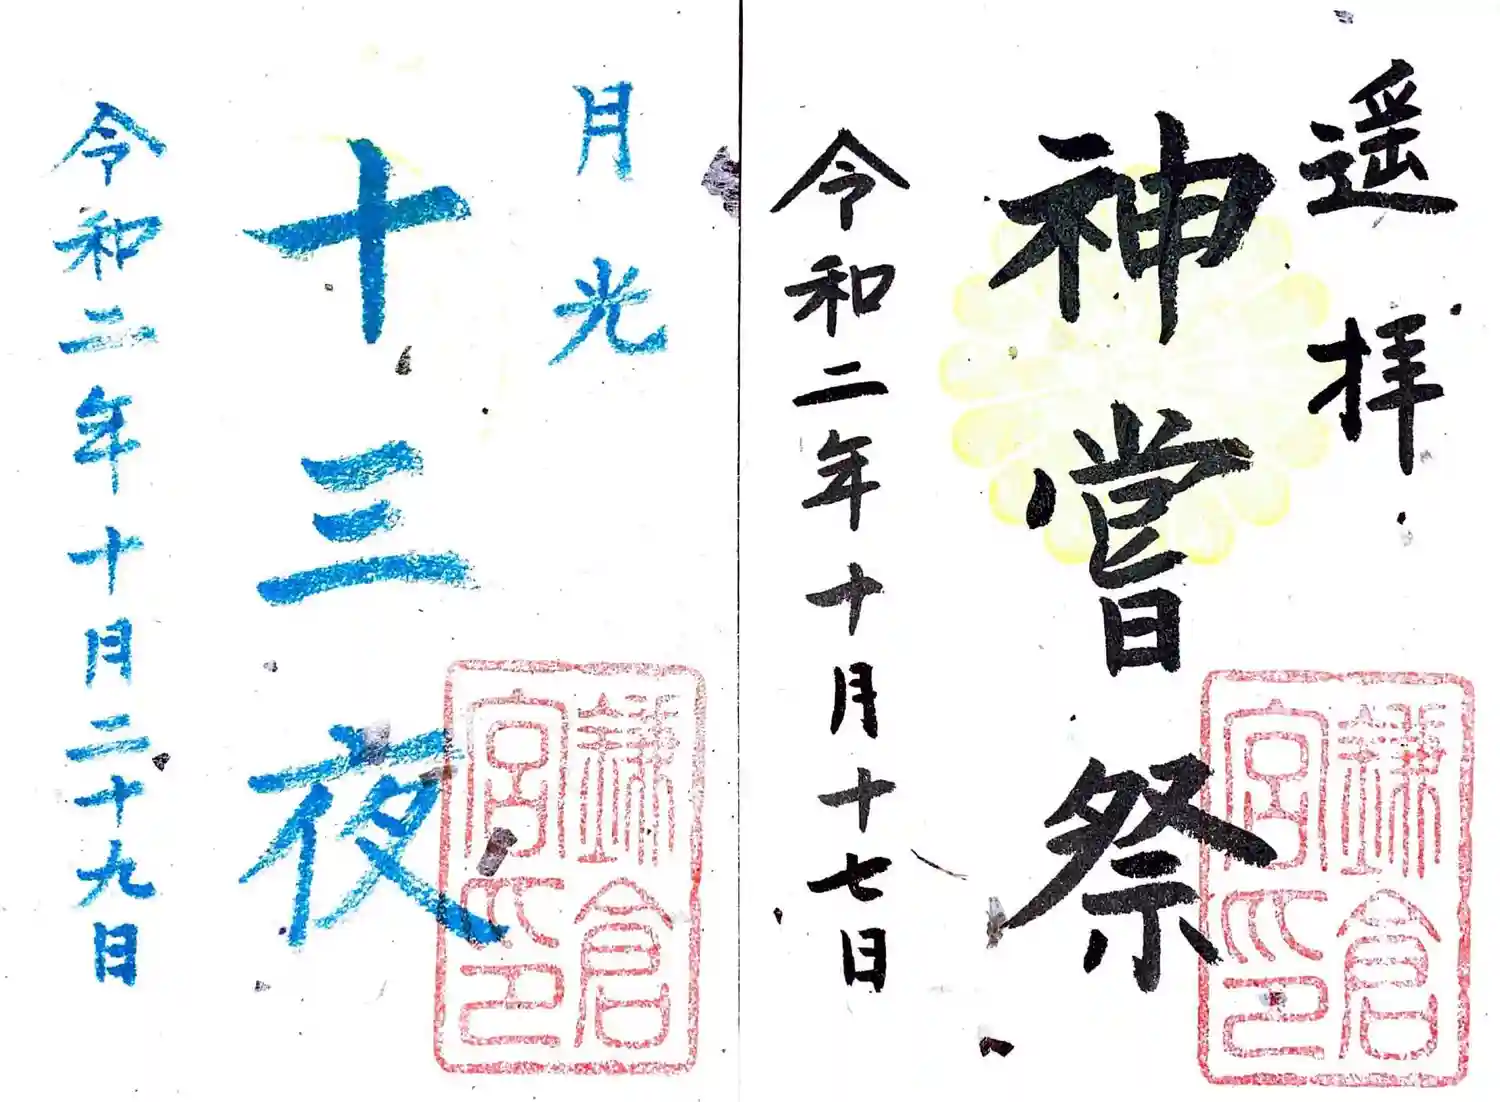 遥拝
神嘗祭
令和二年十月十七日
鎌倉宮印
月光
十三夜
令和二年十月二十九日
鎌倉宮印